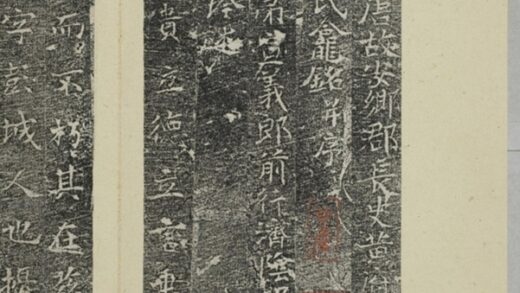 唐故安鄉郡長史黃府
氏龕銘并序
宣義郎前行濟陰
貴立德立言垂
而不朽其在茲
字彭城人也